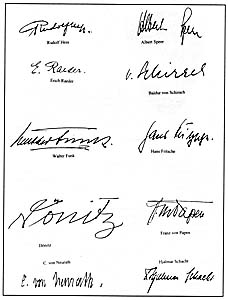 Rudolf Hess
Albert Speer
E. Raeder.
v. Schirach
Erich Raeder
Baldur von Schirach
Walter Funk
Hans Fritsche
Dönitz
Franz von Papen
Dönitz
C. von Neurath
Hjalmar Schacht
C. von Neurath.
Hjalmar Schacht